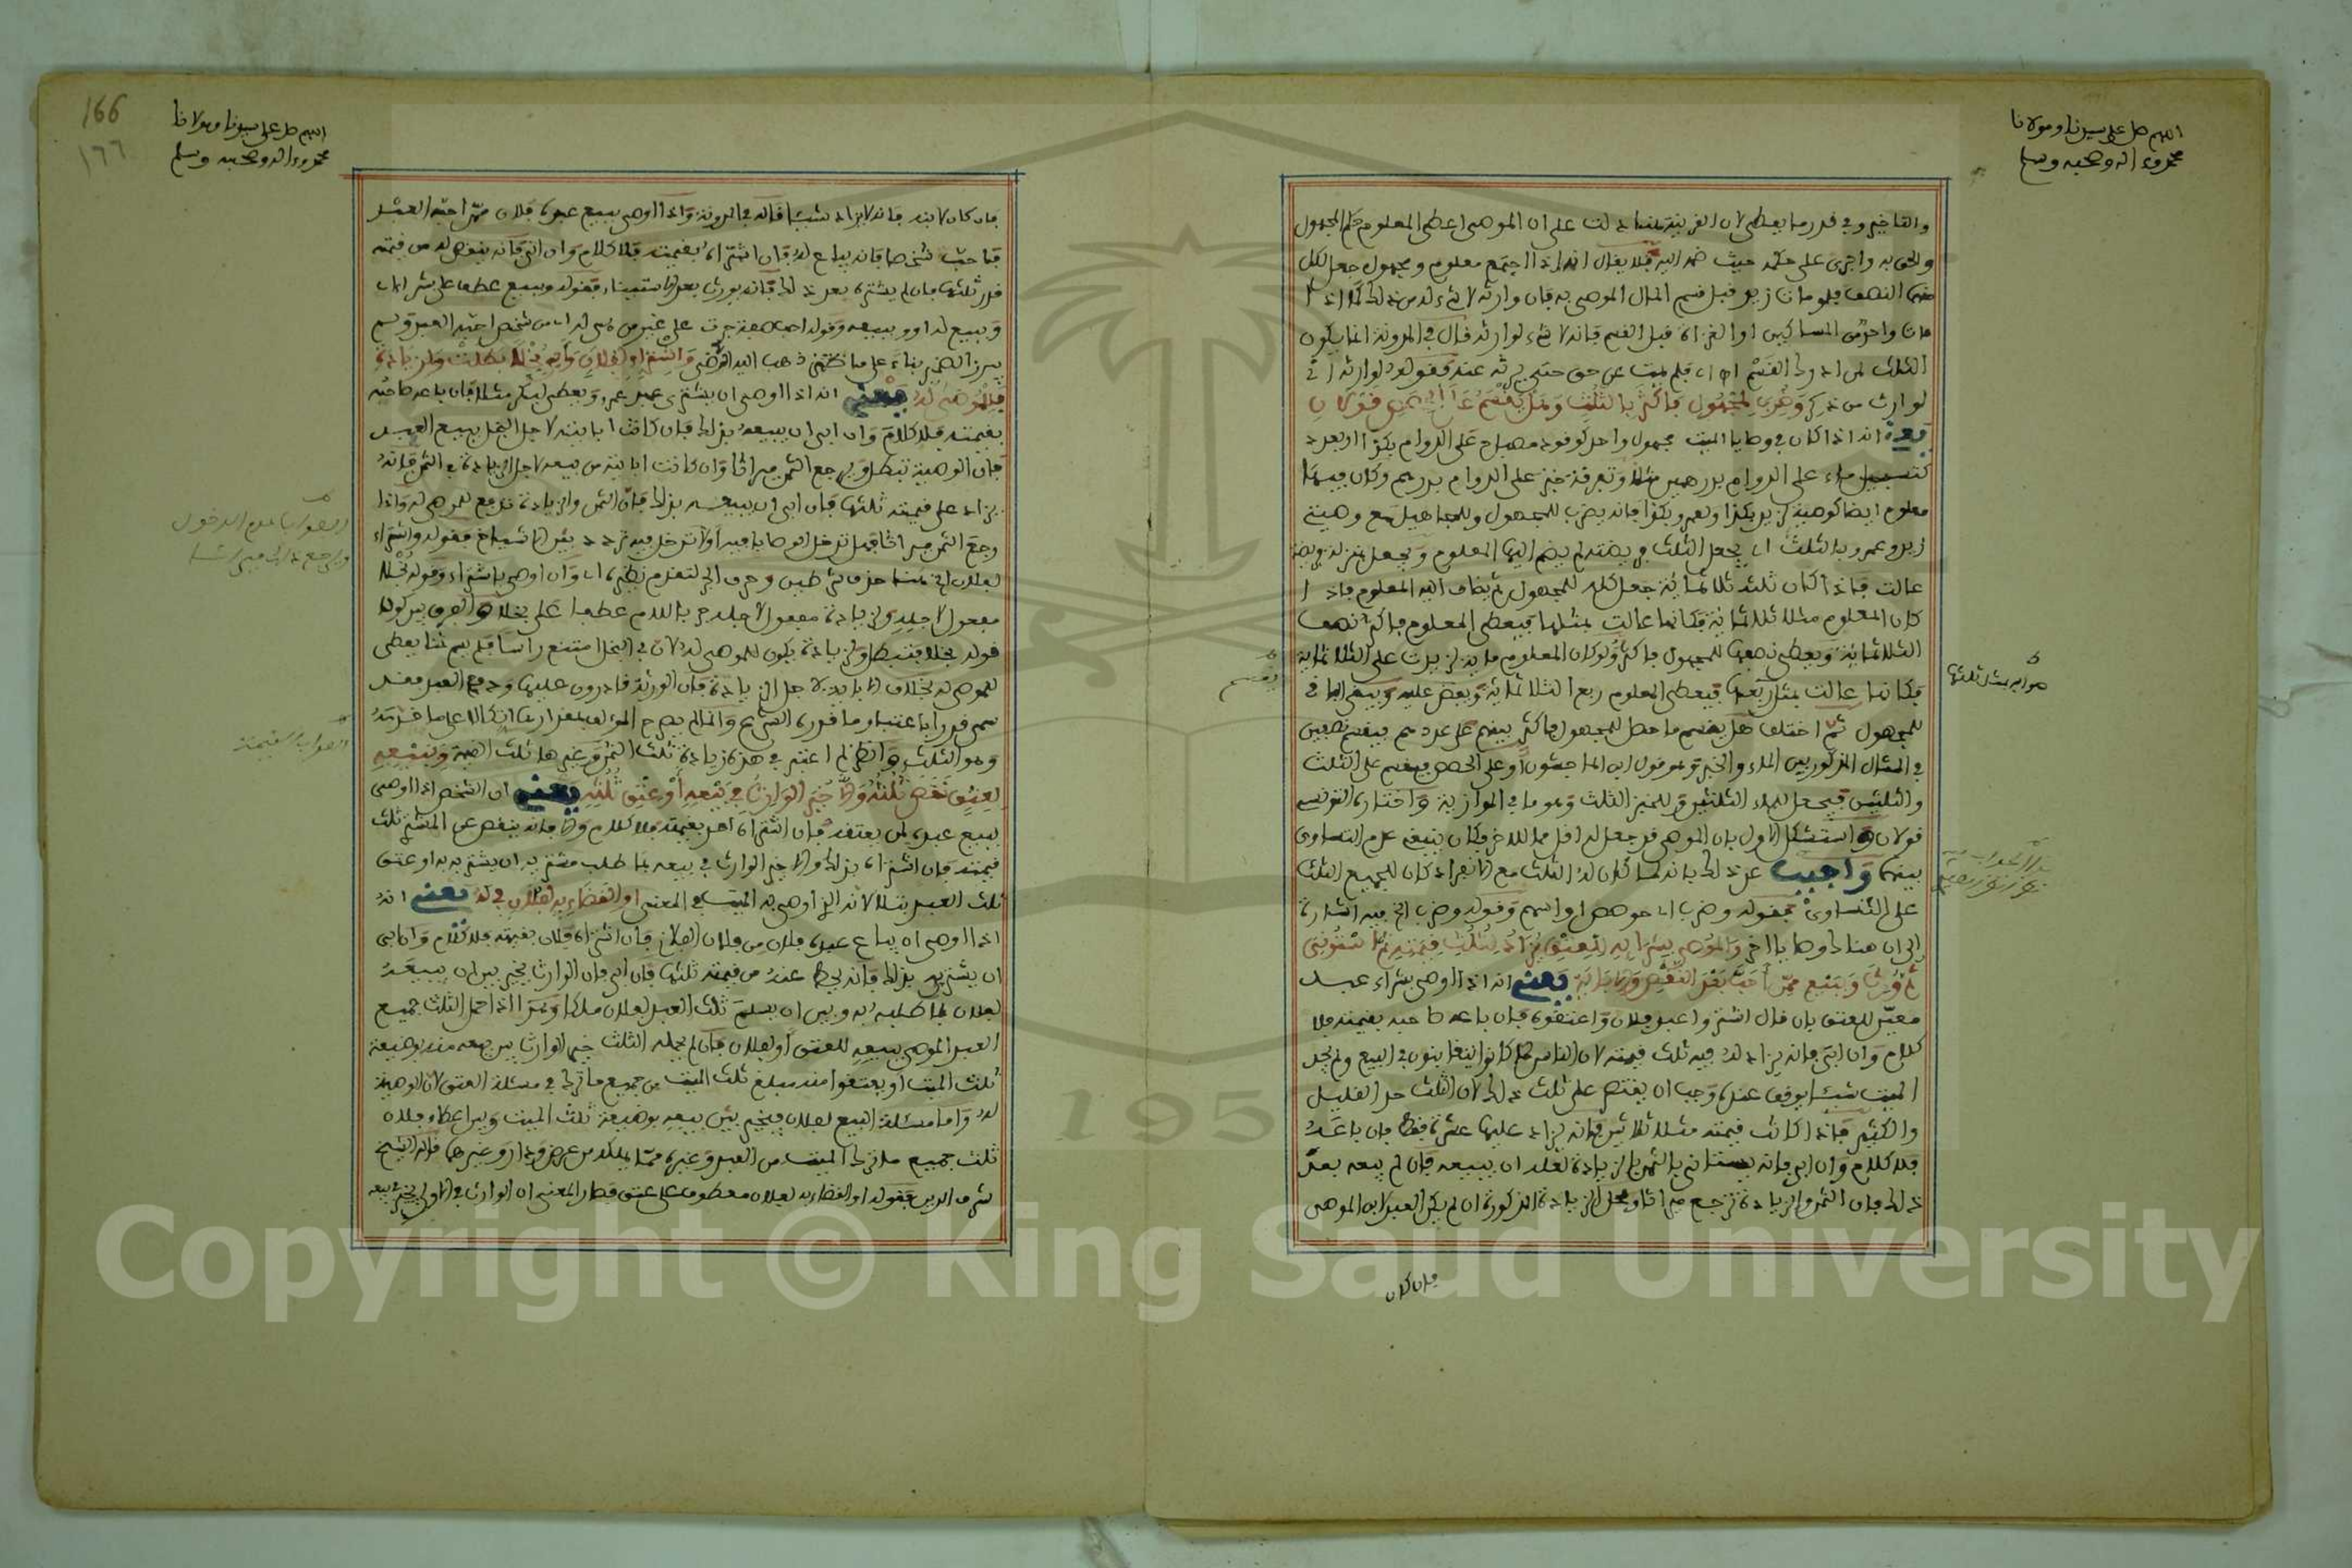 اللهم صل على سيدنا ومولانا
محمد وءاله وصحبه وسلم
والتاخير وفي قدر ما يعطى لان القرينة هنا دلت على ان الموصي اعطى المعلوم حكم المجهول
والحق به واجرى على حكمه حيث ضمه اليه فلا يقال انه اذا اجتمع معلوم ومجهول جعل لكل
منهما النصف فلو مات زيد قبل قسم المال الموصى به فان وارثه لا شيء له من ذلك كما اذا
مات واحد من المساكين او الغزاة قبل القسم فانه لا شيء لوارثه قال في المدونة انما يكون
الثلث لمن ادرك القسم
لوارث من ذكر وضرب لمجهول فاكثر بالثلث وهل يقسم على الحصص قولان
يعني انه اذا كان في وصايا الميت مجهول واحد كوقود مصباح على الدوام بكذا او بعدد
كتسبيل ماء على الدوام بدرهمين مثلا وتفرقة خبز على الدوام بدرهم وكان فيها
معلوم ايضا كوصية لزيد بكذا ولعمرو بكذا فانه يضرب للمجهول وللمجاهيل مع وصية
زيد وعمرو بالثلث اي يجعل الثلث فريضته ثم يضم اليها المعلوم ويجعل بمنزلة فريضة
عالت فاذا كان ثلثه ثلاثمائة جعل كله للمجهول ثم يضاف اليه المعلوم فاذا
كان المعلوم مثلا ثلاثمائة فكانما عالت بمثلها فيعطى المعلوم فاكثر نصف
الثلاثمائة ويعطى نصفها للمجهول فاكثر ولو كان المعلوم مائة زيدت على الثلاثمائة
فكانما عالت بمثل ربعها فيعطى المعلوم ربع الثلاثمائة وبعض عليه ويبقى الباقي
للمجهول ثم اختلف هل يقسم ما حصل للمجهول فاكثر بينهم على عددهم فيقسم نصفين
في المثال المذكور بين الماء والخبز وهو قول ابن الماجشون او على الحصص فيقسم على الثلث
والثلثين فيجعل للماء الثلثين وللخبز الثلث وهو ما في الموازية واختاره التونسي
قولان واستشكل الاول بان الموصي قد جعل لهذا اقل مما للاخر فكان ينبغي عدم التساوي
بينهما واجيب عن ذلك بانه لما كان له الثلث مع الانفراد كان للجميع الثلث
على التساوي فقوله وضرب اي حوصص او اسهم وقوله وضرب الخ فيه اشارة
الى ان هناك وصايا اخر والموصى بشرائه للعتق يزاد لثلث قيمته ثم استؤني
ثم ورث وببيع ممن احب بعد النقص والاباية يعني انه اذا اوصى بشراء عبد
معين للعتق بان قال اشتروا عبد فلان واعتقوه فان باعه صاحبه بقيمته فلا
كلام وان ابى فانه يزاد له فيه ثلث قيمته لان الناس لما كانوا يتغابنون في البيع ولم يحد
الميت شيئا يوقف عنده وجب ان يقتصر على ثلث ذلك لان الثلث حد القليل
والكثير فاذا كانت قيمته مثلا ثلاثين فانه يزاد عليها عشرة فقط فان باعه
فلا كلام وان ابى فانه يستانى بالثمن بالزيادة لعله ان يبيعه فان لم يبعه بعد
ذلك فان الثمن والزيادة ترجع ميراثا ومحل الزيادة المذكورة ان لم يكن العبد لابن الموصي
فان كان
صوابه بمثل ثلثها
166
١٦٦
اللهم صل على سيدنا ومولانا
محمد وءاله وصحبه وسلم
فان كان لابنه فانه لا يزاد شيئا قاله في المدونة واذا اوصى ببيع عبده فلان ممن احبه العبد
فاحب شخصا فانه يباع له فان اشتراه بقيمته فلا كلام وان ابى فانه ينقص له من قيمته
قدر ثلثها فان لم يشتره بعد ذلك فانه يورث بعد الاستيناء فقوله وببيع عطف على بشرائه
يبرز الضمير بناء على ما ذهب اليه واشتراء لفلان وابى بخلا بطلت ولزيادة
فللموصى له يعني انه اذا اوصى ان يشترى عبد عمرو ويعطى لبكر مثلا فان باعه صاحبه
بقيمته فلا كلام وان ابى ان يبيعه بذلك فان كانت ابايته لاجل البخل ببيع العبد
فان الوصية تبطل ويرجع الثمن ميراثا وان كانت ابايته من بيعه لاجل الزيادة في الثمن فانه
يزاد على قيمته ثلثها فان ابى ان يبيعه بذلك فان الثمن والزيادة تدفع للموصى له واذا
رجع الثمن ميراثا فهل تدخل الوصايا فيه او لا تدخل فيه تردد بين الاشياخ فقوله واشتراء
مفعول لاجله ولزيادة مفعول لاجله جر باللام عطفا على بخلا والفرق بين كونه
قوله بخلا فتبطل ولزيادة يكون للموصى له لان في البخل امتنع راسا فلم يبق شيئا يعطى
للموصى له بخلاف الاباية لاجل الزيادة فان الورثة قادرون عليها
وهو الثلث وانظر لم اعتبر في هذه زيادة ثلث الثمن وغيرها ثلث القيمة وببيعه
لعتق نقص ثلثه والا خير الوارث في بيعه او عتق ثلثه يعني ان الشخص اذا اوصى
ببيع عبده لمن يعتقه فان اشتراه احد بقيمته فلا كلام والا فانه ينقص عن المشتري ثلث
قيمته فان اشتراه بذلك والا خير الوارث في بيعه بما طلب مشتريه ان يشتريه به او عتق
ثلث العبد بتلا لانه الذي اوصى به الميت في المعنى او القضاء به لفلان في له يعني انه
اذا اوصى ان يباع عبده فلان من فلان الفلاني فان اشتراه فلان بقيمته فلا كلام وان ابى
ان يشتريه بذلك فانه يحط عنه من قيمته ثلثها فان ابى فان الوارث يخير بين ان يبيعه
لفلان بما طلبه به وبين ان يسلم ثلث العبد لفلان ملكا وهذا اذا حمل الثلث جميع
العبد الموصى ببيعه للعتق او لفلان فان لم يحمله الثلث خير الوارث بين بيعه منه بوضيعة
ثلث الميت او يعتقوا منه مبلغ ثلث الميت من جميع ما ترك في مسئلة العتق لان الوصية
له واما مسئلة البيع لفلان فيخير بين بيعه بوضيعة ثلث الميت وبين اعطاء فلان
ثلث جميع ما ترك الميت من العبد وغيره مما يملكه من عرض ودار وغيرهما قاله الشيخ
شرف الدين فقوله او القضاء به لفلان معطوف على عتق فصار المعنى ان الوارث في الاولى يخير في بيعه